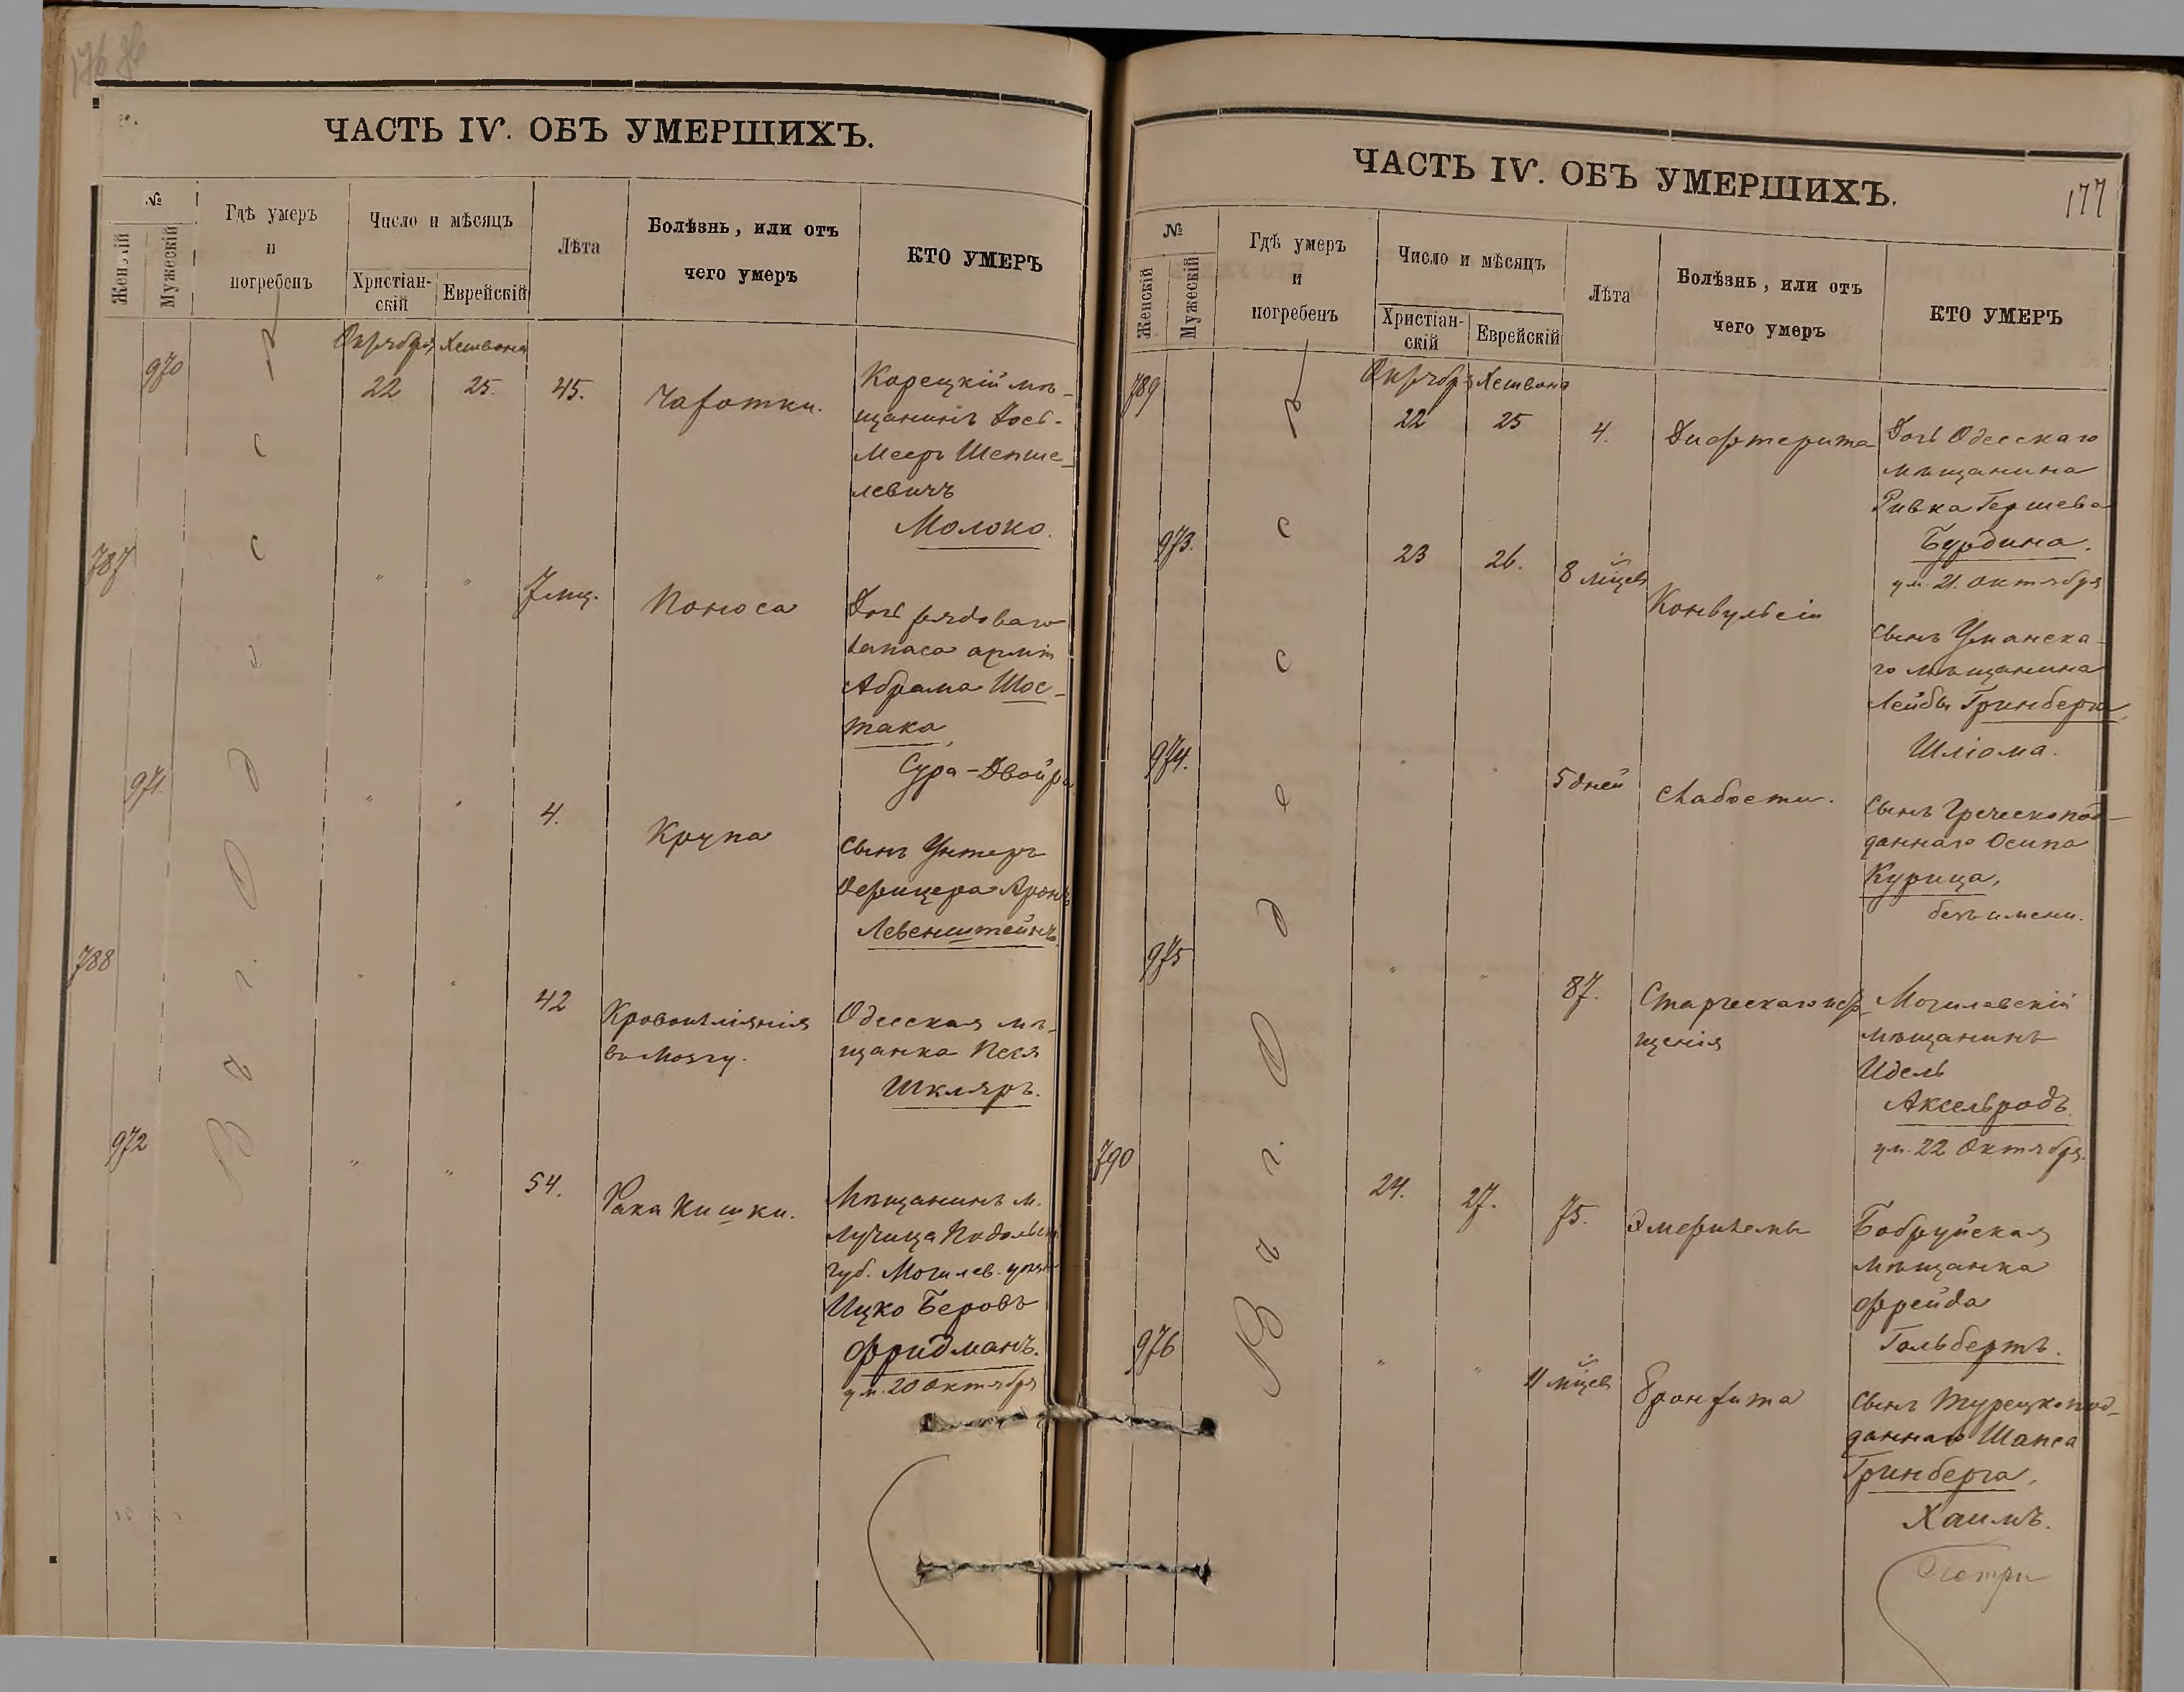 176
ЧАСТЬ IV. ОБЪ УМЕРШИХЪ.
№
Женскій
Мужескій
Гдѣ умеръ
и
погребенъ
Число и мѣсяцъ
Христіан-
скій
Еврейскій
Лѣта
Болѣзнь, или отъ
чего умеръ
КТО УМЕРЪ
Въ г. Одессѣ
Октября Хешвона
970
22
25.
45.
Чахотки.
Корецкій мѣ-
щанинъ Іось-
Мееръ Шепше-
левичъ
Молоко.
787
"
"
7 мц.
Поноса
Дочь рядоваго
запаса арміи
Абрама Шос-
така,
Сура-Двойра
971.
"
"
4.
Крупа
Сынъ Унтеръ
Офицера Аронъ
Левенштейнъ.
788
"
"
42
Кровоизліянія
въ мозгу.
Одесская мѣ-
щанка Песя
Шкляръ.
972
"
"
54.
Рака кишки.
Мѣщанинъ м.
Лучинца Подольской
губ. Могилев. уѣзда
Ицко Беровъ
Фридманъ.
ум. 20 Октября
ЧАСТЬ IV. ОБЪ УМЕРШИХЪ.
177
№
Женскій
Мужескій
Гдѣ умеръ
и
погребенъ
Число и мѣсяцъ
Христіан-
скій
Еврейскій
Лѣта
Болѣзнь, или отъ
чего умеръ
КТО УМЕРЪ
Въ г. Одессѣ
Октября Хешвона
789
22
25
4.
Дифтерита
Дочь Одесскаго
мѣщанина
Ривка Гершева
Бурдина.
ум. 21. Октября
973.
23
26.
8 мѣцев
Конвульсіи
Сынъ Уманска-
го мѣщанина
Лейбы Гринберга,
Шліома.
974.
"
"
5 дней
Слабости.
Сынъ Греческопод-
даннаго Осипа
Курица,
безъ имени.
975
"
"
87.
Могилевскій
мѣщанинъ
Идель
Аксельродъ.
ум. 22 Октября.
790
24.
27.
75.
Эмфиземы
Бобруйская
мѣщанка
Фрейда
Гольбертъ.
976
"
"
11 мѣцев
Бронхита
Сынъ Турецкопод-
даннаго Шапса
Гринберга,
Хаимъ.